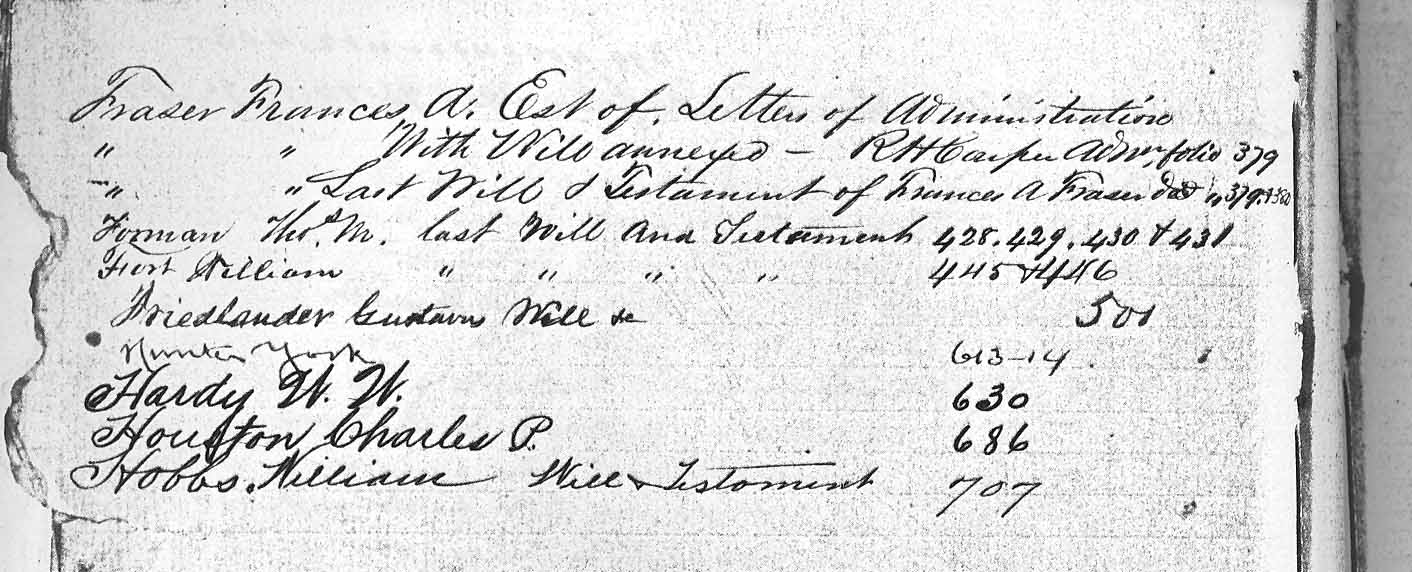 Fraser Frances A. Est of. Letters of Administration
" " With Will annexed — R H Cooper Admr. folio 379
" " Last Will & Testament of Frances A Fraser decd " 379 & 380
Forman Thos. M. last Will And Testament 428. 429. 430 & 431
Fort William " " " " 445 & 446
Friedlander Gustavus Will &c 501
Hunter York 613-14
Hardy W. W. 630
Houston Charles P. 686
Hobbs. William Will & Testament 707